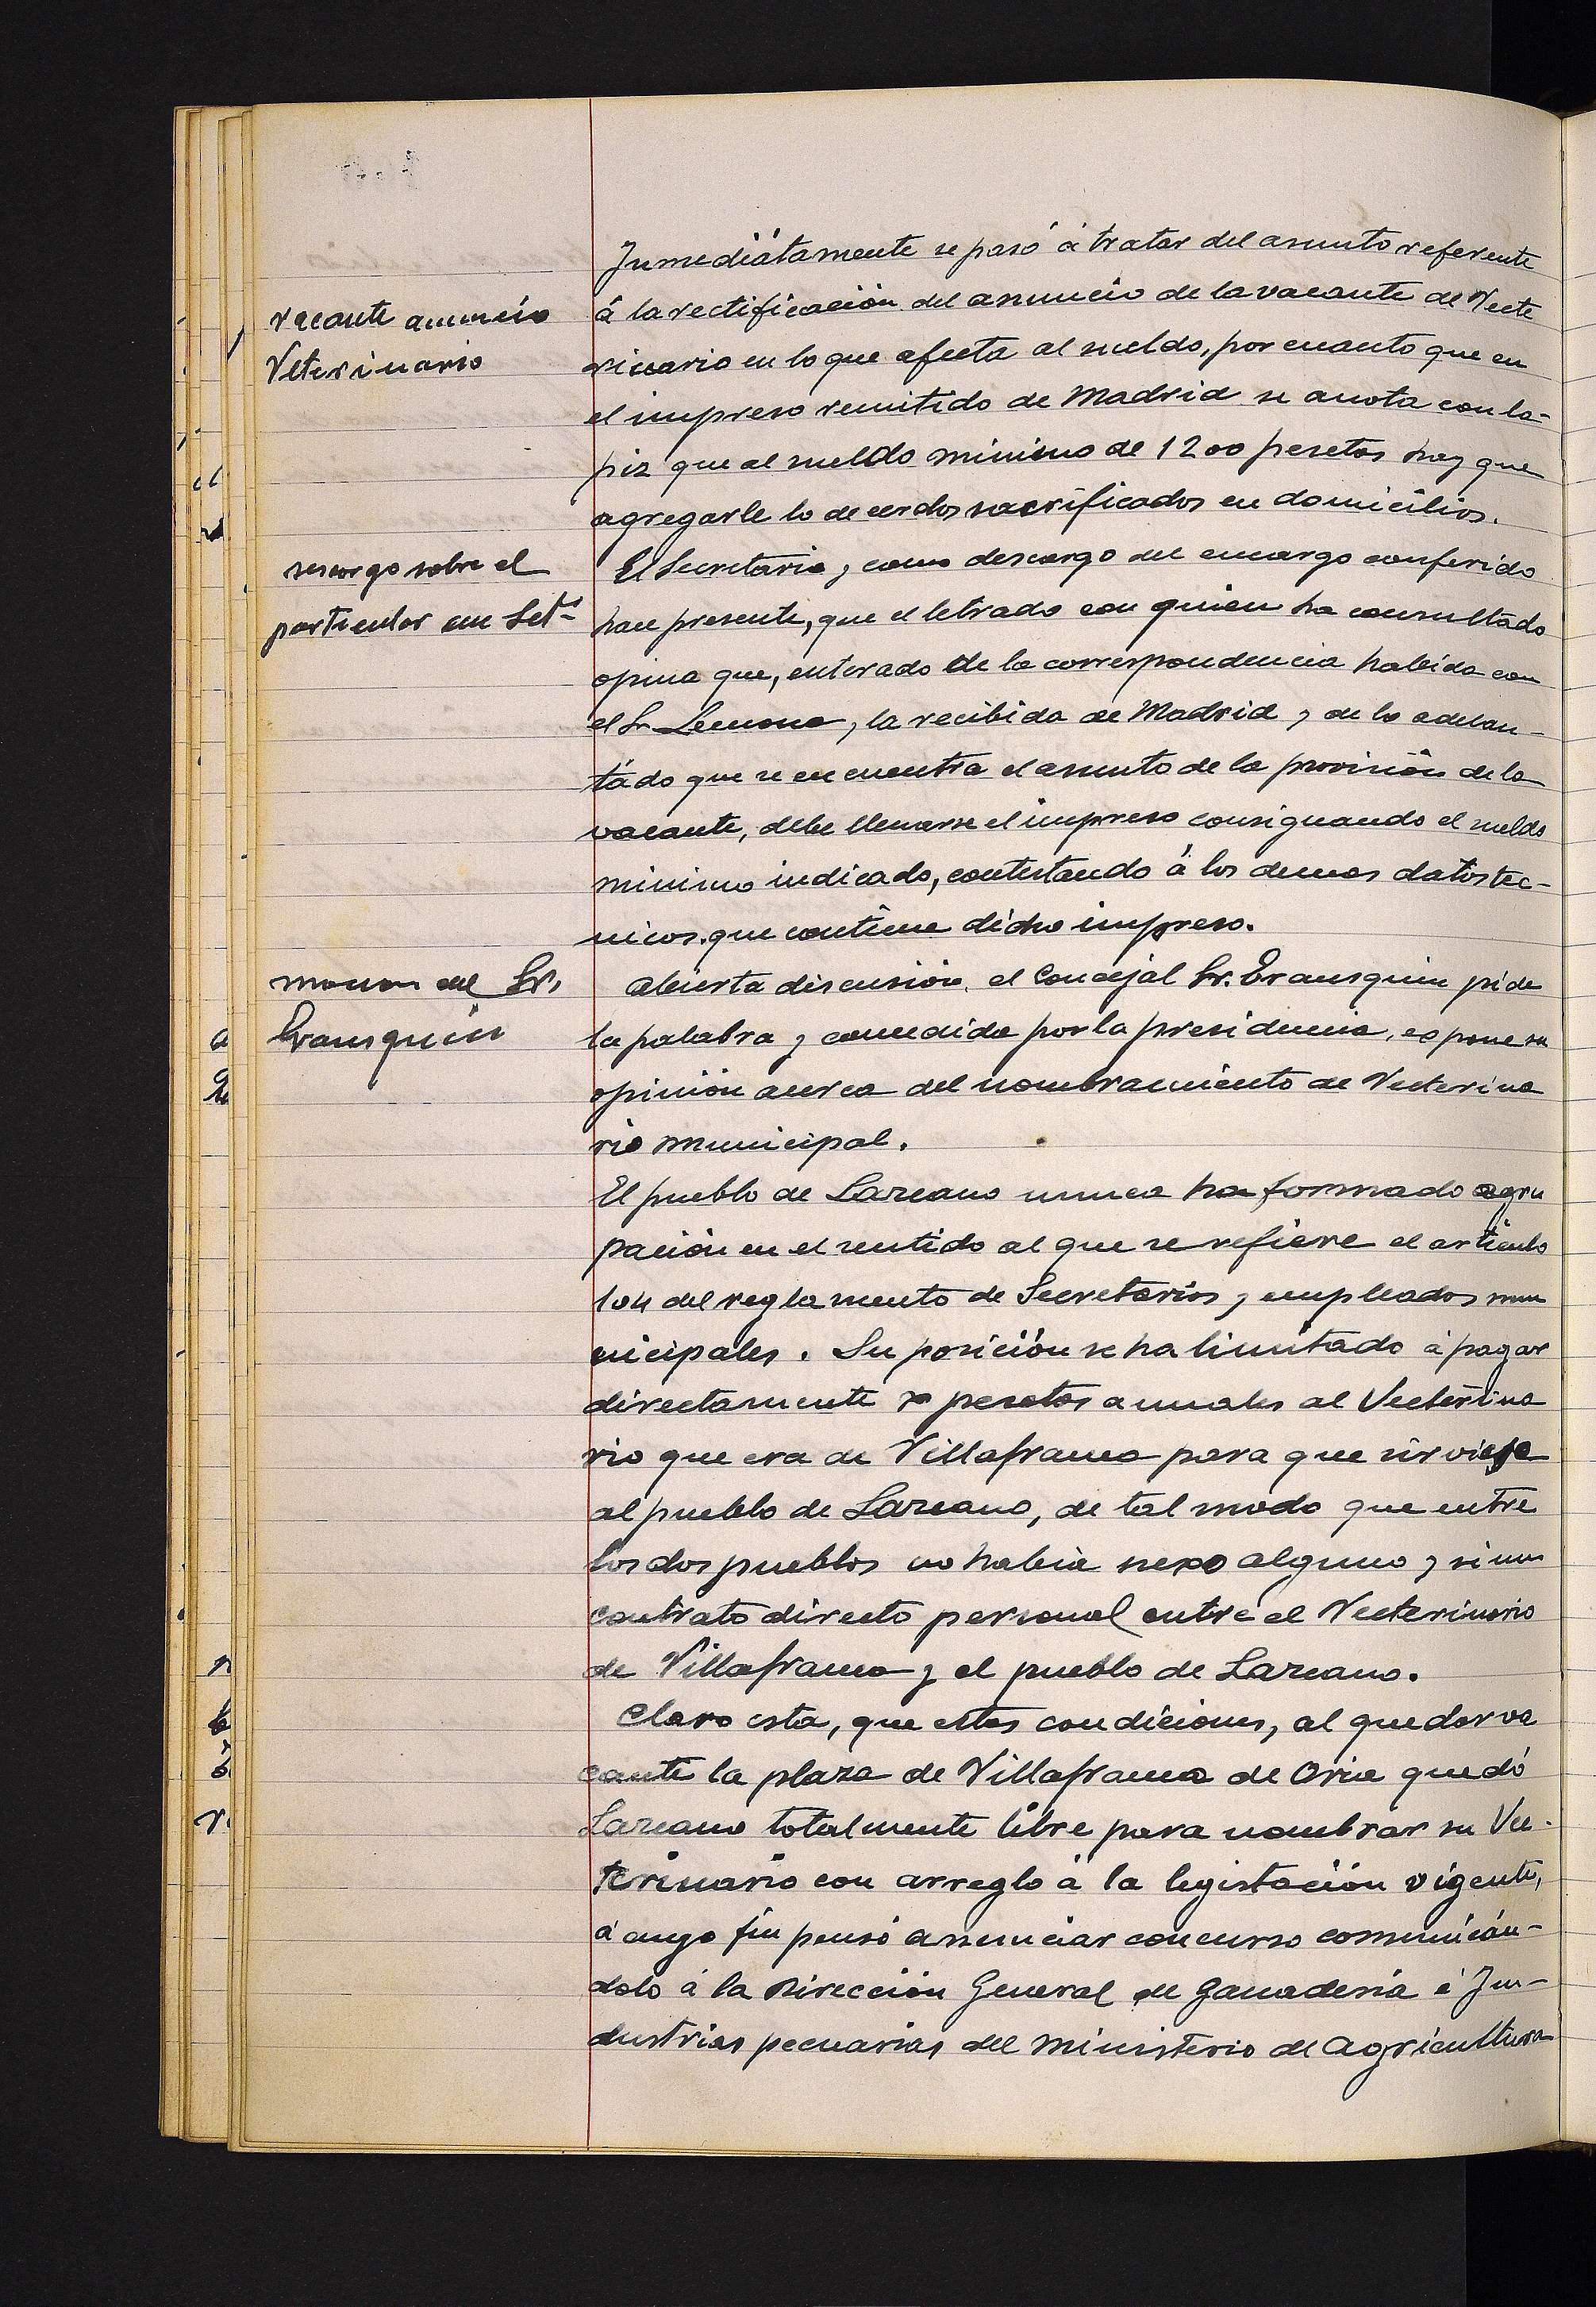 Inmediátamente se pasó á tratar del asunto referente
vacante anuncio
Veterinario
á la rectificación del anuncio de la vacante de Vecte
rinario en lo que afecta al sueldo, por cuanto que en
el impreso remitido de Madrid se anota con la-
piz que al sueldo minimo de 1200 pesetas hay que
agregarle lo de cerdos sacrificados en domicilios.
sobre el
particular
El Secretario, como descargo del encargo conferido
hace presente, que el letrado con quien ha consultado
opina que, enterado de la correspondencia habida con
el Sr Lecuona, la recibida de Madrid y de lo adelan-
tádo que se encuentra el asunto de la provisión de la
vacante, debe llenarse el impreso consignando el sueldo
minimo indicado, contestando á los demas datos tec-
nicos que contiene dicho impreso.
mocion del Sr.
Erausquin
Abierta discusión, el Concejal Sr. Erausquin pide
la palabra y concedida por la presidencia, expone su
opinión acerca del nombramiento de Vecterina
rio municipal.
El pueblo de Lazcano nunca ha formado agru
pación en el sentido al que se refiere el articulo
104 del reglamento de Secretarios y empleados mu
nicipales. Su posición se ha limitado á pagar
directamente pesetas anuales al Vecterina
rio que era de Villafranca para que sirviese
al pueblo de Lazcano, de tal modo que entre
los dos pueblos no habia nexo alguno y si un
contrato directo personal entre el Vecterinario
de Villafranca y el pueblo de Lazcano.
Claro esta, que estas condiciones, al quedar va
cante la plaza de Villafranca de Oria quedó
Lazcano totalmente libre para nombrar su Vec-
terinario con arreglo á la legislación vigente,
á cuyo fin pensó anunciar concurso comunicán-
dolo á la Dirección General de Ganaderia é In-
dustrias pecuarias del Ministerio de Agricultura